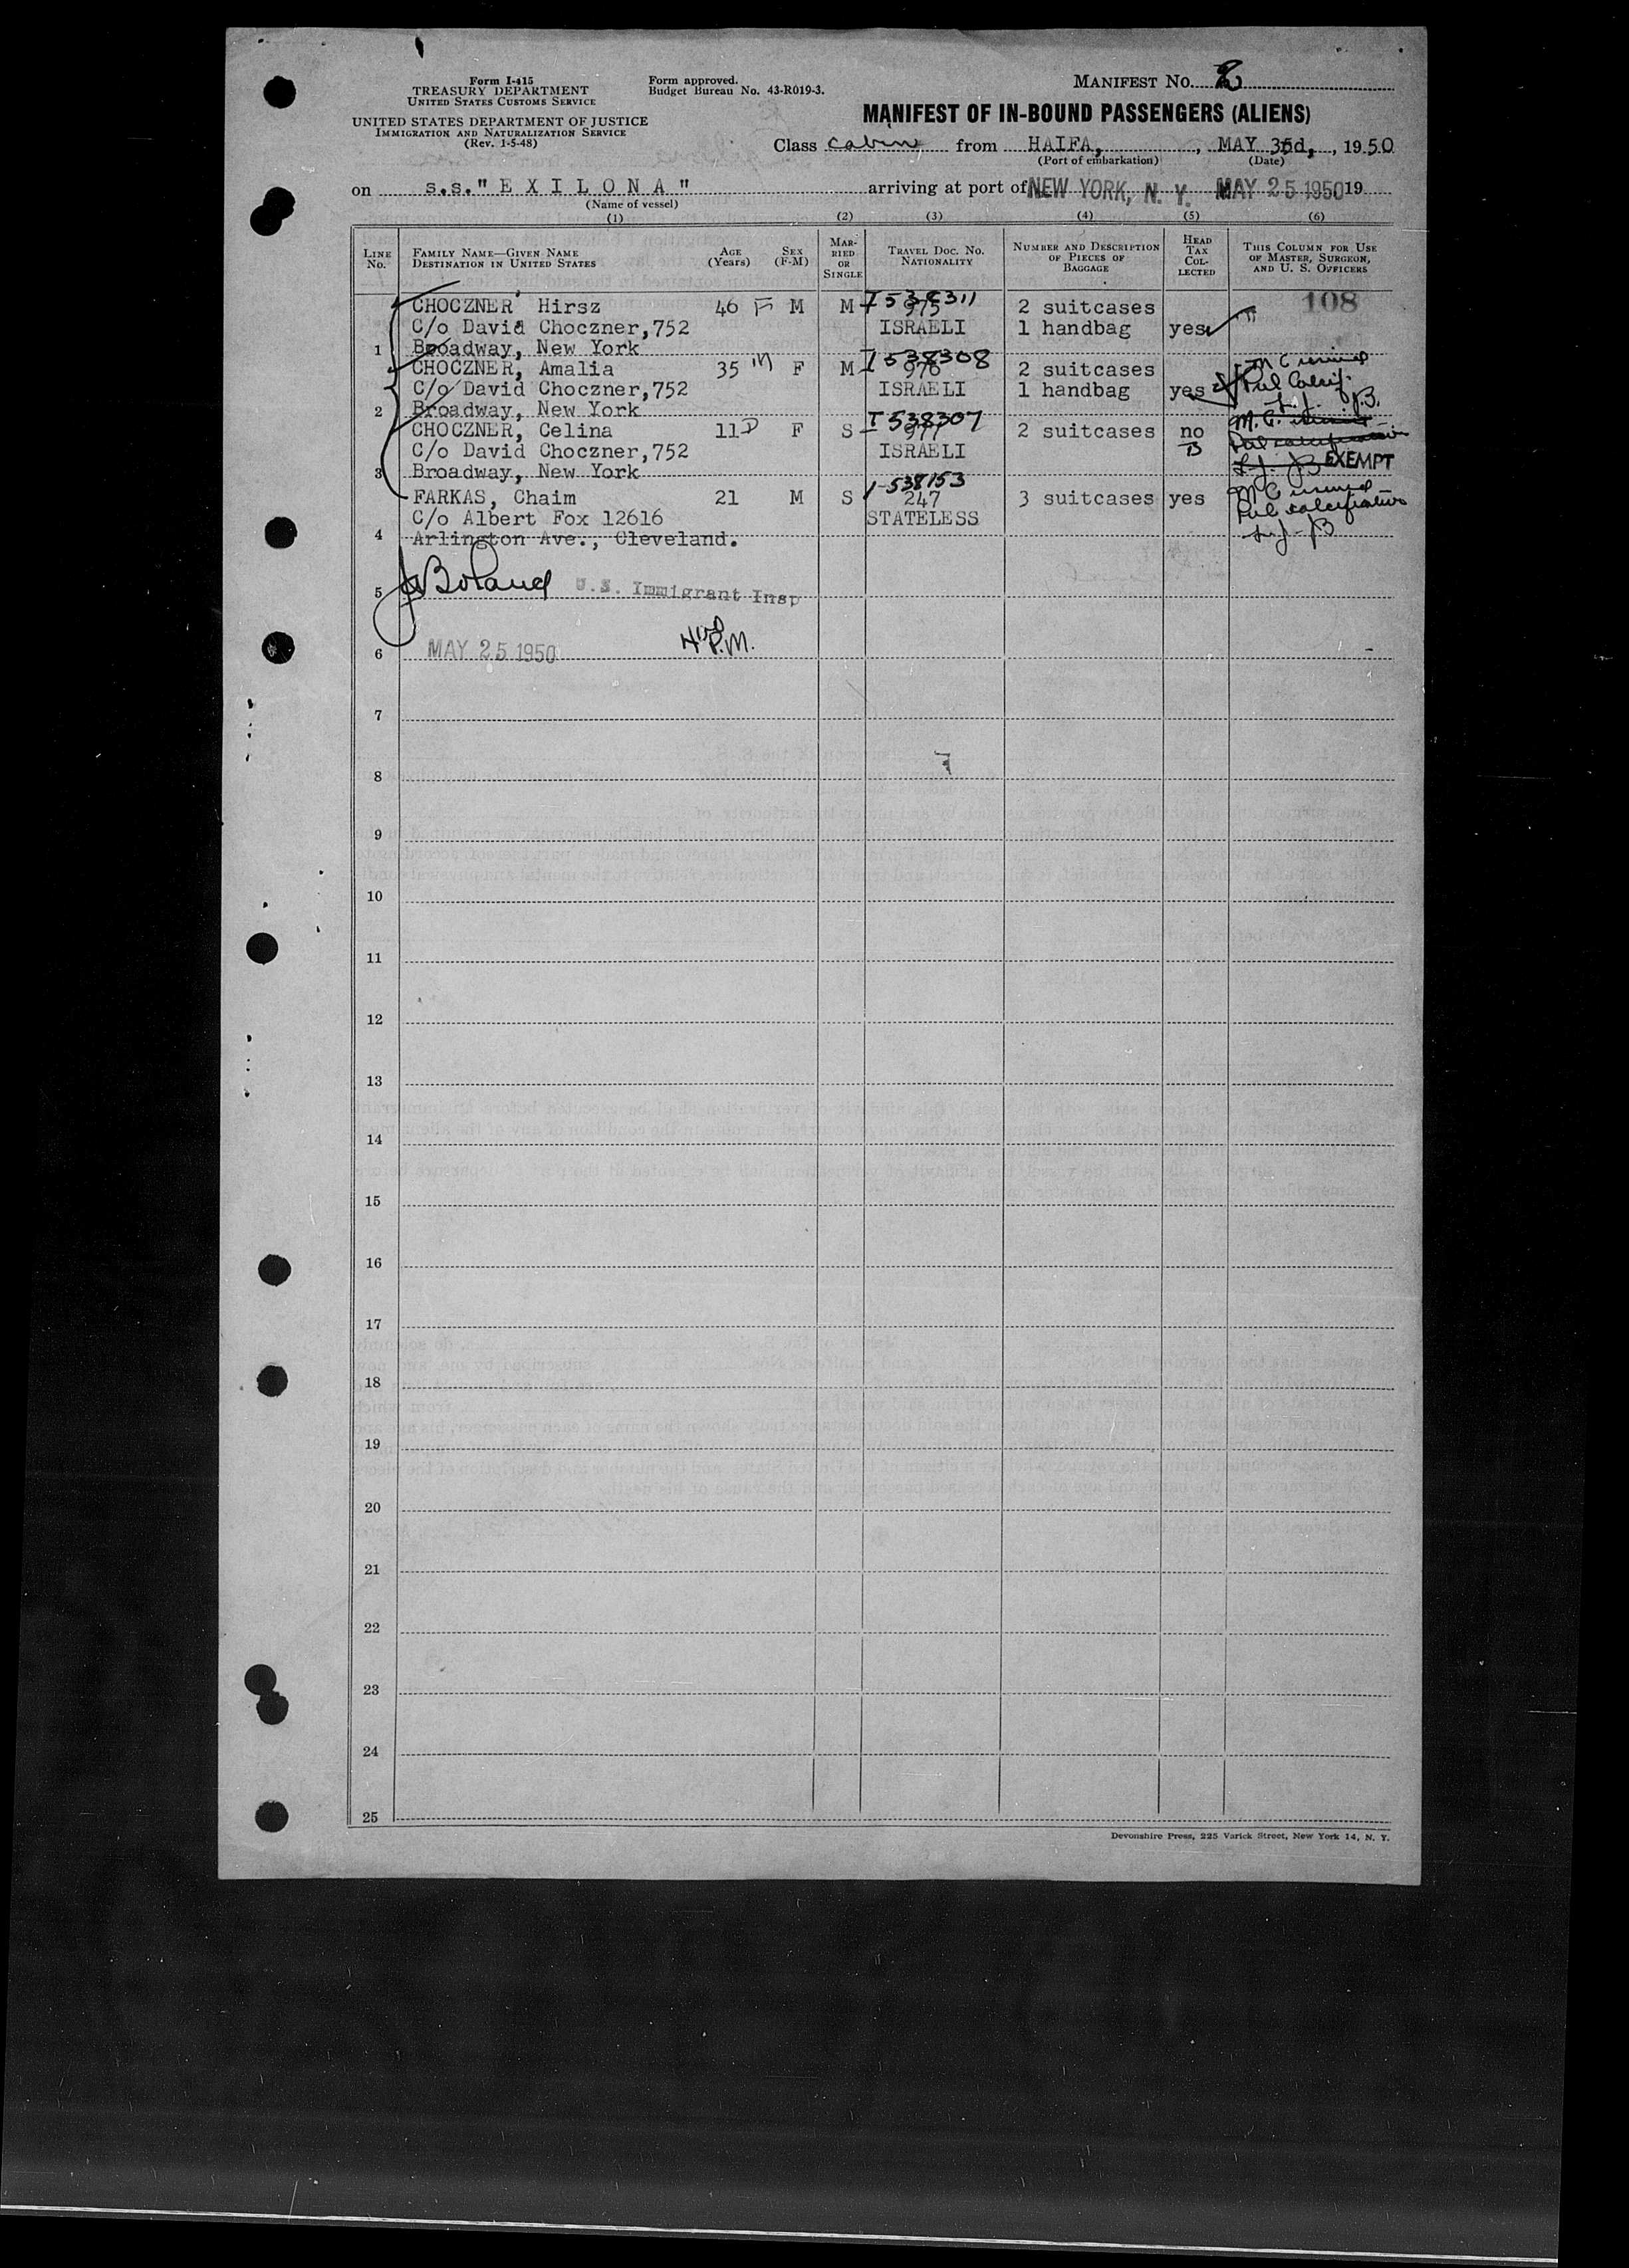 Form I-415
TREASURY DEPARTMENT
UNITED STATES CUSTOMS SERVICE
UNITED STATES DEPARTMENT OF JUSTICE
IMMIGRATION AND NATURALIZATION SERVICE
(Rev. 1-5-48)
Form approved.
Budget Bureau No. 43-R019-3.
MANIFEST No. 2
MANIFEST OF IN-BOUND PASSENGERS (ALIENS)
Class cabin from HAIFA, , MAY 3d, , 1950
(Port of embarkation) (Date)
on s.s." E X I L O N A " arriving at port of NEW YORK, N. Y. MAY 25 1950 19
(Name of vessel)
(1) (2) (3) (4) (5) (6)
LINE No.
FAMILY NAME—GIVEN NAME
DESTINATION IN UNITED STATES
AGE (Years)
SEX (F-M)
MARRIED OR SINGLE
TRAVEL DOC. NO. NATIONALITY
NUMBER AND DESCRIPTION OF PIECES OF BAGGAGE
HEAD TAX COLLECTED
THIS COLUMN FOR USE OF MASTER, SURGEON, AND U. S. OFFICERS
I 538311 108
CHOCZNER Hirsz 46 F M M 975 2 suitcases
C/o David Choczner,752 ISRAELI 1 handbag yes
1 Broadway, New York
I 538308
CHOCZNER, Amalia 35 m F M 976 2 suitcases
C/o David Choczner,752 ISRAELI 1 handbag yes Pul Calcif.
2 Broadway, New York L.J. JB.
I 538307
CHOCZNER, Celina 11 D F S 977 2 suitcases no
C/o David Choczner,752 ISRAELI
3 Broadway, New York L.J. JB EXEMPT
I-538153
FARKAS, Chaim 21 M S 247 3 suitcases yes
C/o Albert Fox 12616 STATELESS Pul calcification
4 Arlington Ave., Cleveland. L.J - JB
5 J Boland U.S. Immigrant Insp
6 MAY 25 1950 P.M.
7
8
9
10
11
12
13
14
15
16
17
18
19
20
21
22
23
24
25
Devonshire Press, 225 Varick Street, New York 14, N. Y.